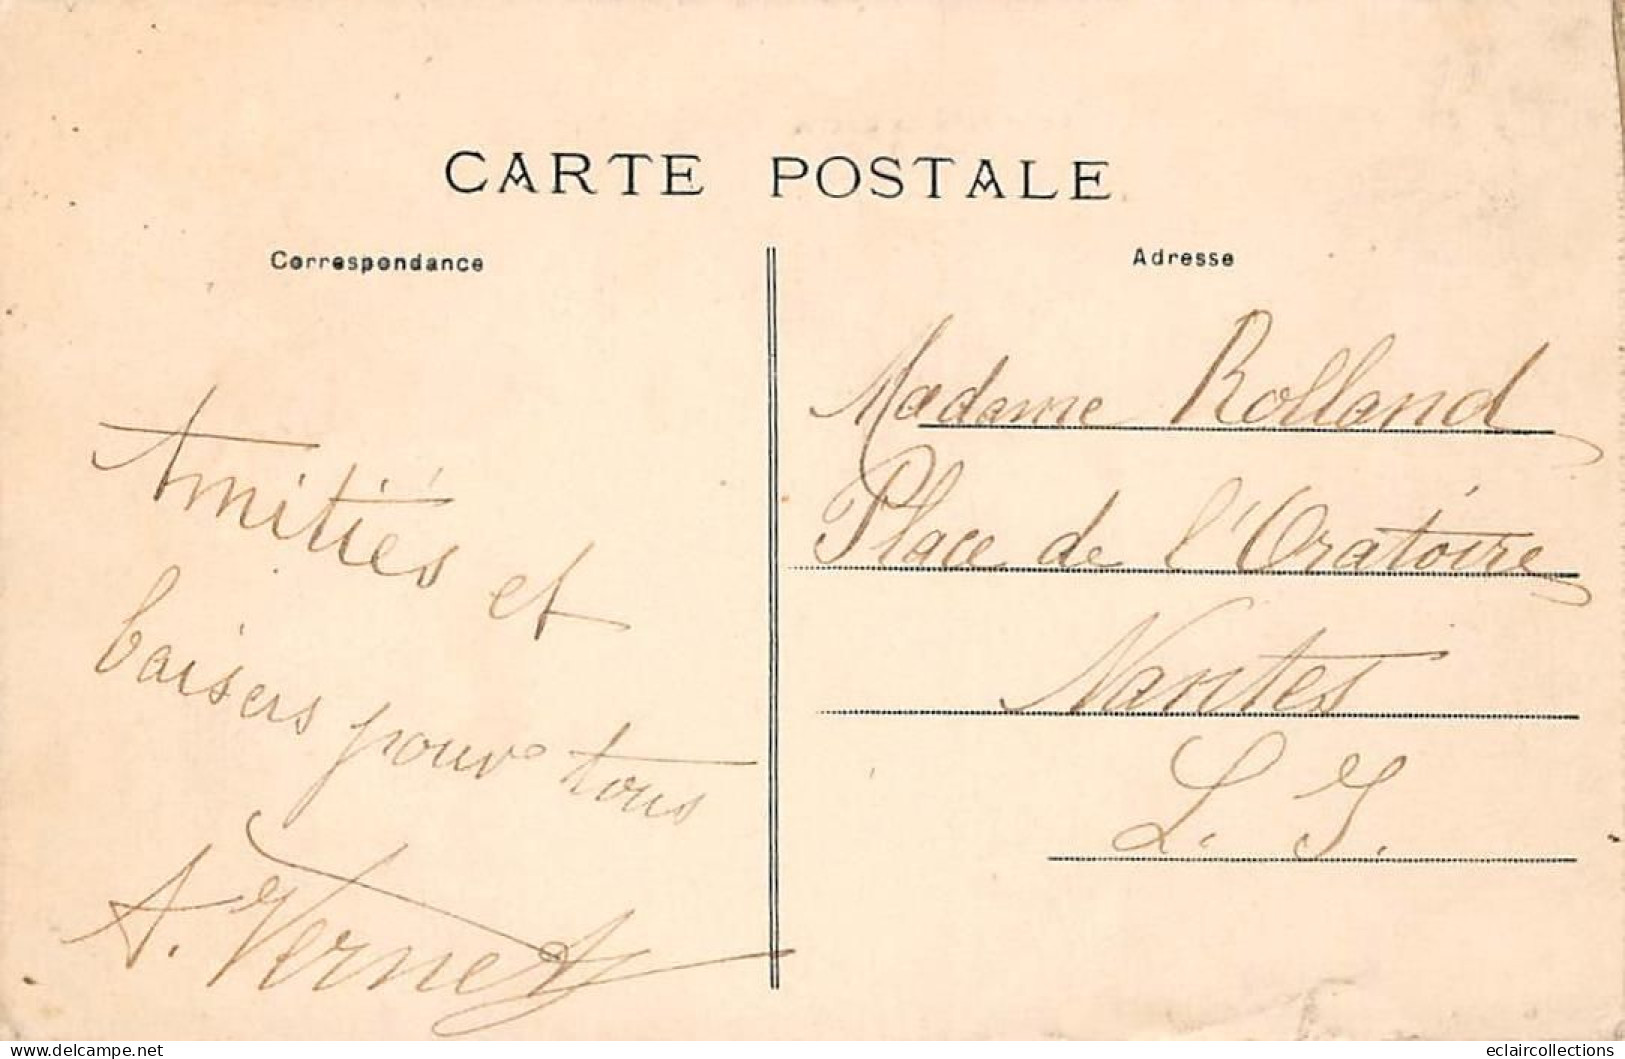 CARTE POSTALE
Correspondance
Amitiés et
baisers pour tous
A. Vernet
Adresse
Madame Rolland
Place de l'Oratoire
Nantes
L. I.
delcampe.net
eclaircollections